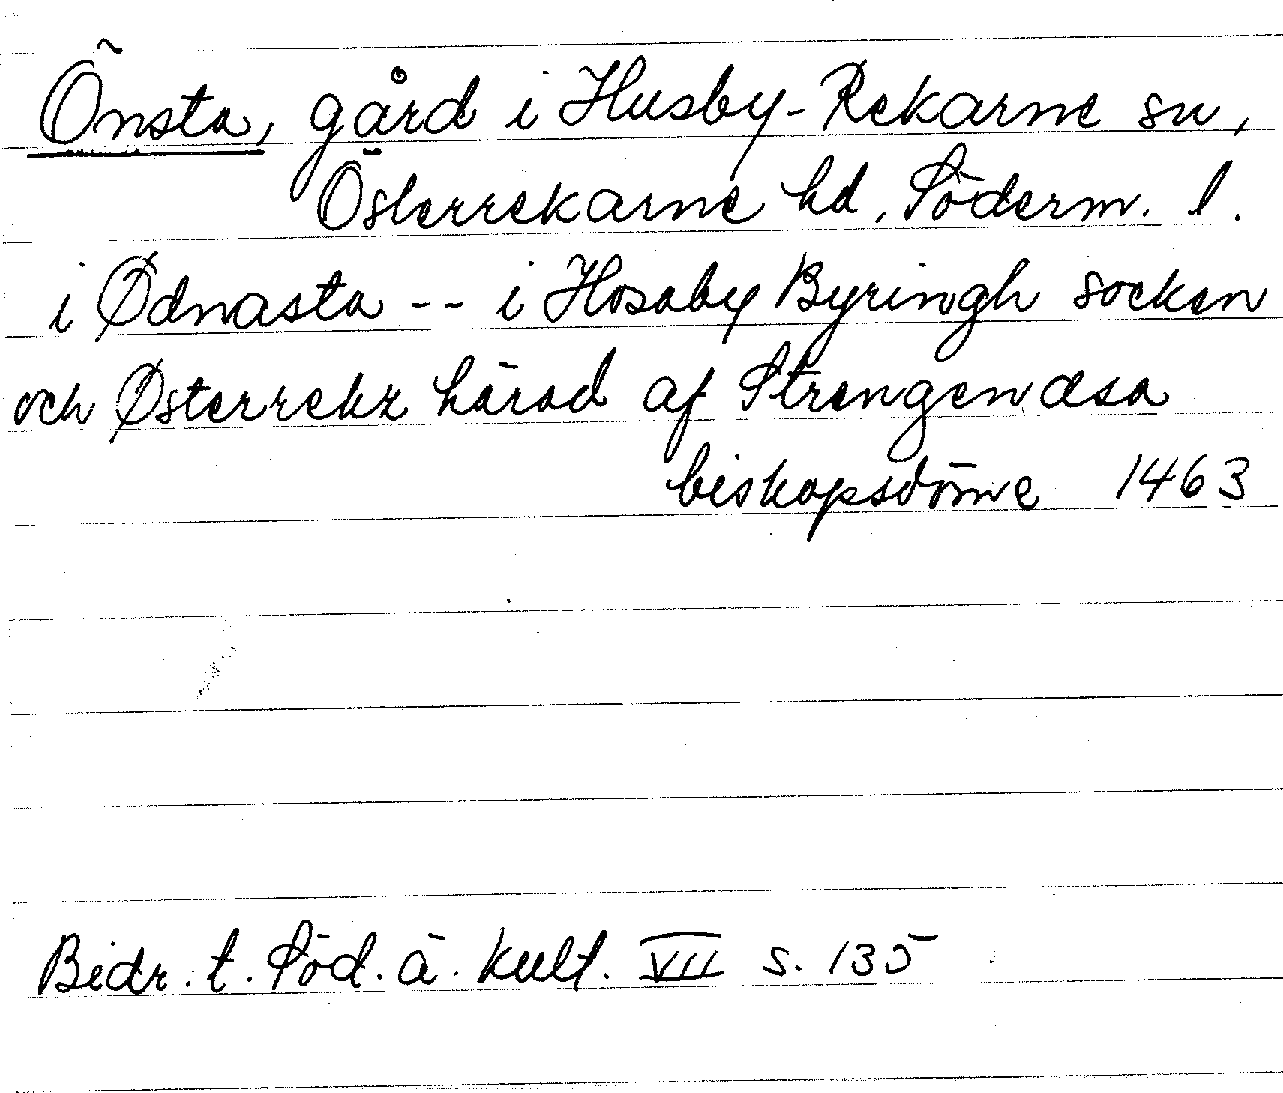 Önsta, gård i Husby-Rekarne sn,
Österrekarne hd, Söderm. l.
i Ødnasta -- i Hosaby Byringh socken
och Østerrekx härad af Strengenæsa
biskopsdöme 1463
Bidr. t. Söd. ä. kult. VII s. 135